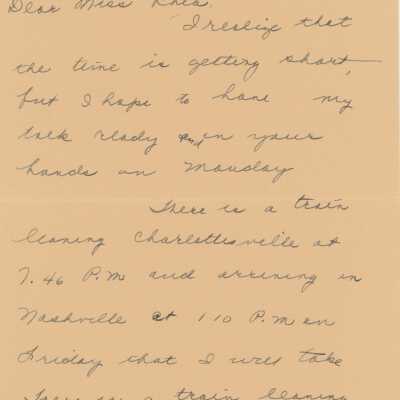 Dear Miss Rhea.
I realize that
the time is getting short,
but I hope to have my
talk ready and in your
hands on Monday
There is a train
leaving Charlottesville at
7.46 P.M and arriving in
Nashville at 1 10 P.M on
Friday that I will take
There is a train leaving